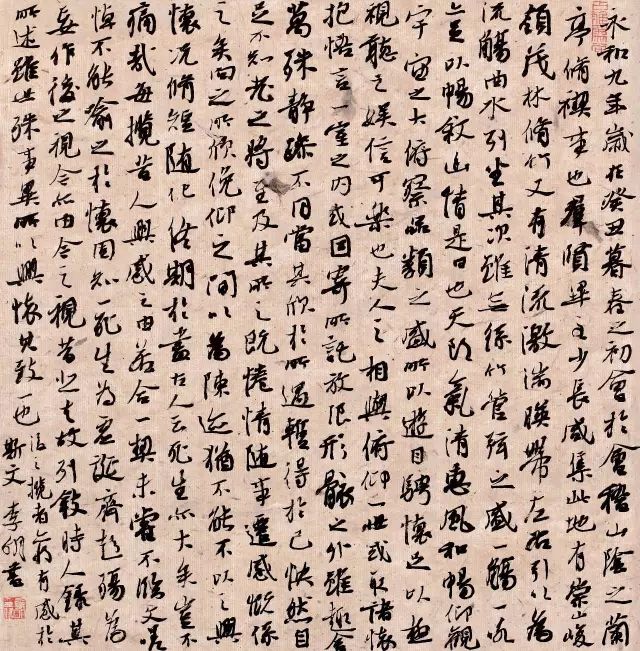 永和九年歲在癸丑暮春之初會於會稽山陰之蘭
亭脩禊事也群賢畢至少長咸集此地有崇山峻
領茂林脩竹又有清流激湍暎帶左右引以為
流觴曲水列坐其次雖無絲竹管弦之盛一觴一詠
亦足以暢敘幽情是日也天朗氣清惠風和暢仰觀
宇宙之大俯察品類之盛所以遊目騁懷足以極
視聽之娛信可樂也夫人之相與俯仰一世或取諸懷
抱悟言一室之內或因寄所託放浪形骸之外雖趣舍
萬殊靜躁不同當其欣於所遇暫得於己快然自
足不知老之將至及其所之既惓情隨事遷感慨係
之矣向之所欣俛仰之間以為陳迹猶不能不以之興
懷況脩短隨化終期於盡古人云死生亦大矣豈不
痛哉每攬昔人興感之由若合一契未嘗不臨文嗟
悼不能喻之於懷固知一死生為虛誕齊彭殤為
妄作後之視今亦由今之視昔悲夫故列敘時人錄其
所述雖世殊事異所以興懷其致一也
後之攬者亦有感於
斯文 李明書